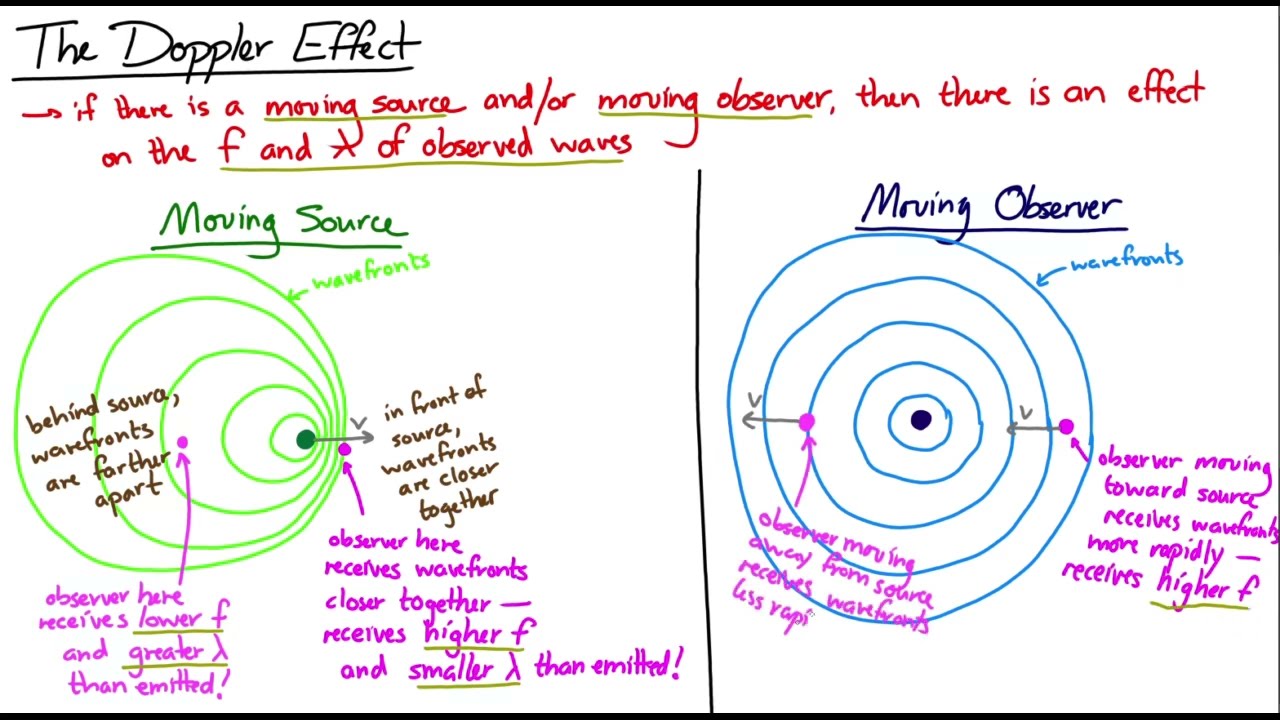 The Doppler Effect
→ if there is a moving source and/or moving observer, then there is an effect
on the f and λ of observed waves
Moving Source
wavefronts
behind source,
wavefronts
are farther
apart
v
in front of
source,
wavefronts
are closer
together
observer here
receives lower f
and greater λ
than emitted!
observer here
receives wavefronts
closer together —
receives higher f
and smaller λ than emitted!
Moving Observer
wavefronts
v
v
observer moving
away from source
receives wavefronts
less rapi
observer moving
toward source
receives wavefronts
more rapidly —
receives higher f